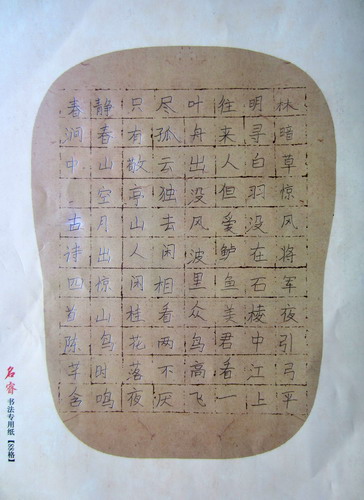 林暗草惊风将军夜引弓平
明寻白羽没在石棱中江上
往来人但爱鲈鱼美君看一
叶舟出没风波里众鸟高飞
尽孤云独去闲相看两不厌
只有敬亭山人闲桂花落夜
静春山空月出惊山鸟时鸣
春涧中 古诗四首陈
名睿 书法专用纸【88格】